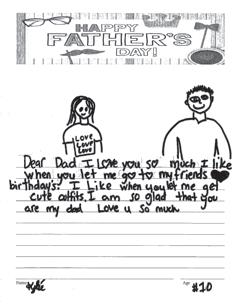 HAPPY
FATHER'S
DAY!
LOVE
LOVE
LOVE
Dear Dad I Love you so much I like
when you let me go to my friends
birthday's. I Like when you let me get
cute outfits. I am so glad that you
are my dad Love u so much
Name Kylie Age #10